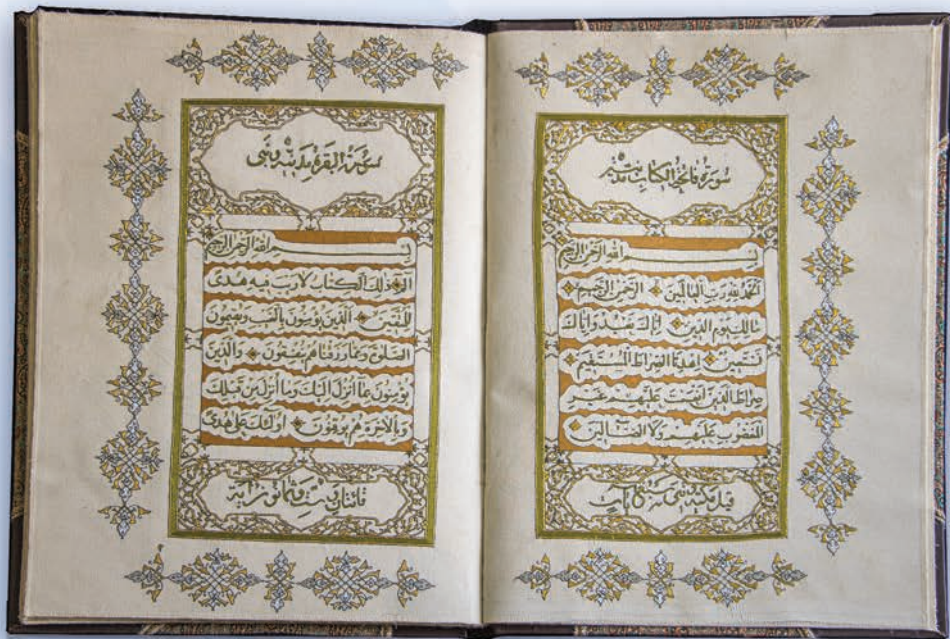 سورة فاتحة الكتاب
بسم الله الرحمن الرحيم
الحمد لله رب العالمين الرحمن الرحيم
مالك يوم الدين اياك نعبد واياك
نستعين اهدنا الصراط المستقيم
صراط الذين انعمت عليهم غير
المغضوب عليهم ولا الضالين
قيل مكية سبع
سورة البقرة مدنية وهي
بسم الله الرحمن الرحيم
الم ذلك الكتاب لا ريب فيه هدى
للمتقين الذين يؤمنون بالغيب ويقيمون
الصلوة ومما رزقناهم ينفقون والذين
يؤمنون بما انزل اليك وما انزل من قبلك
وبالاخرة هم يوقنون اولئك على هدى
مائتان وست وثمانون آية